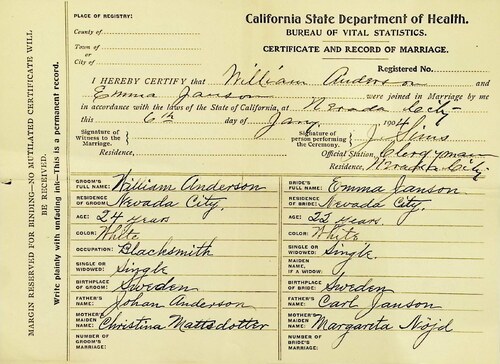 PLACE OF REGISTRY:
County of
Town of
or
City of
California State Department of Health.
BUREAU OF VITAL STATISTICS.
CERTIFICATE AND RECORD OF MARRIAGE.
Registered No.
I HEREBY CERTIFY that William Anderson and
Emma Janson were joined in Marriage by me
in accordance with the laws of the State of California, at Nevada City
this 6th day of Jany. 1904
Signature of
Witness to the
Marriage.
Residence,
Signature of
person performing
the Ceremony.
J. Sims
Official Station, Clergyman
Residence, Nevada City.
MARGIN RESERVED FOR BINDING—NO MUTILATED CERTIFICATE WILL
BE RECEIVED.
Write plainly with unfading ink—This is a permanent record.
GROOM'S
FULL NAME: William Anderson
RESIDENCE
OF GROOM: Nevada City.
AGE: 24 years
COLOR: White
OCCUPATION: Blacksmith
SINGLE OR
WIDOWED: Single
BIRTHPLACE
OF GROOM: Sweden
FATHER'S
NAME: Johan Anderson
MOTHER'S
MAIDEN
NAME: Christina Mattsdotter
NUMBER OF
GROOM'S
MARRIAGE:
BRIDE'S
FULL NAME: Emma Janson
RESIDENCE
OF BRIDE: Nevada City.
AGE: 22 years.
COLOR: White
SINGLE OR
WIDOWED: Single
MAIDEN
NAME,
IF A WIDOW:
BIRTHPLACE
OF BRIDE: Sweden
FATHER'S
NAME: Carl Janson
MOTHER'S
MAIDEN
NAME: Margareta Nöjd
NUMBER OF
BRIDE'S
MARRIAGE: